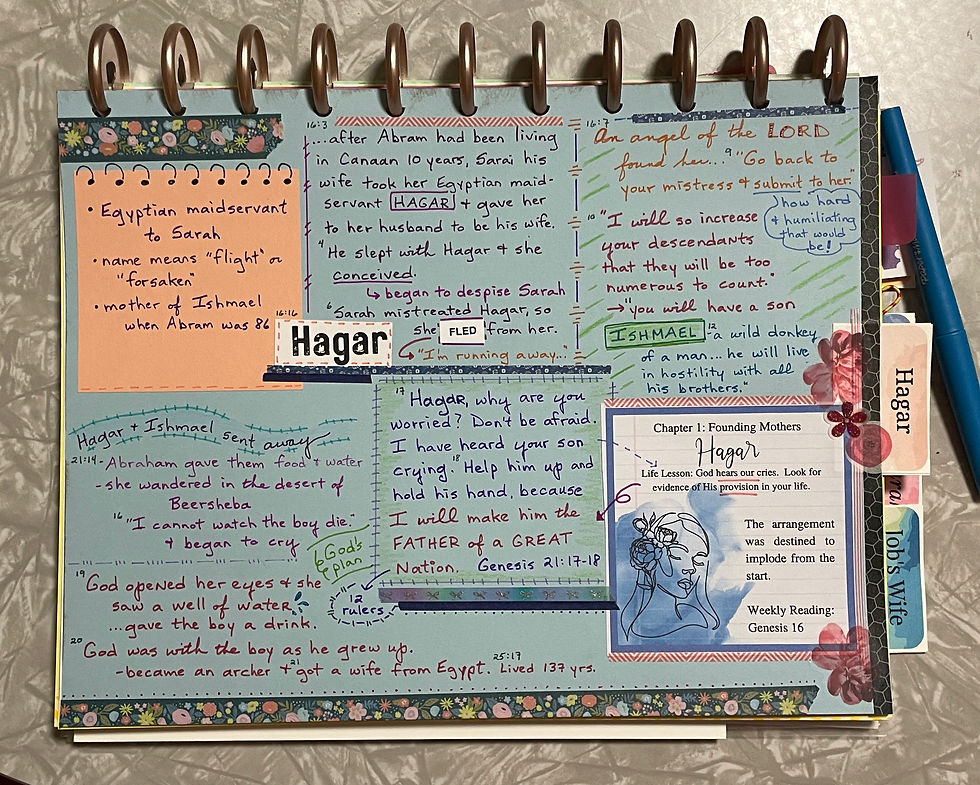 • Egyptian maidservant
to Sarah
• name means "flight" or
"forsaken"
• mother of Ishmael
when Abram was 86
16:16
Hagar
16:3
...after Abram had been living
in Canaan 10 years, Sarai his
wife took her Egyptian maid-
servant HAGAR & gave her
to her husband to be his wife.
4 He slept with Hagar & she
conceived.
↳ began to despise Sarah
6 Sarah mistreated Hagar, so
she FLED from her.
"I'm running away..."
16:7
An angel of the LORD
found her... 9 "Go back to
your mistress & submit to her."
how hard
& humiliating
that would
be!
10 "I will so increase
your descendants
that they will be too
numerous to count."
→ "you will have a son
ISHMAEL 12 a wild donkey
of a man... he will live
in hostility with all
his brothers."
Hagar + Ishmael sent away
21:14 - Abraham gave them food & water
- she wandered in the desert of
Beersheba
16 "I cannot watch the boy die."
& began to cry
17 Hagar, why are you
worried? Don't be afraid.
I have heard your son
crying. 18 Help him up and
hold his hand, because
I will make him the
FATHER of a GREAT
Nation. Genesis 21:17-18
God's
plan
12
rulers
19 God opened her eyes & she
saw a well of water
...gave the boy a drink.
20 God was with the boy as he grew up.
- became an archer & 21 got a wife from Egypt. 25:17 Lived 137 yrs.
Chapter 1: Founding Mothers
Hagar
Life Lesson: God hears our cries. Look for
evidence of His provision in your life.
The arrangement
was destined to
implode from the
start.
Weekly Reading:
Genesis 16
Hagar
Job's Wife